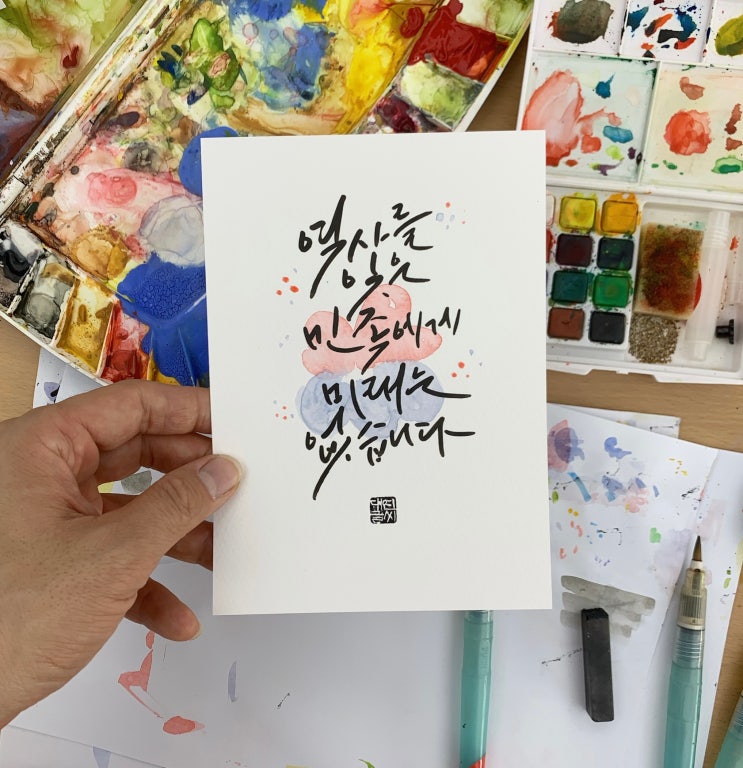 역사를
잊은
민족에게
미래는
없습니다